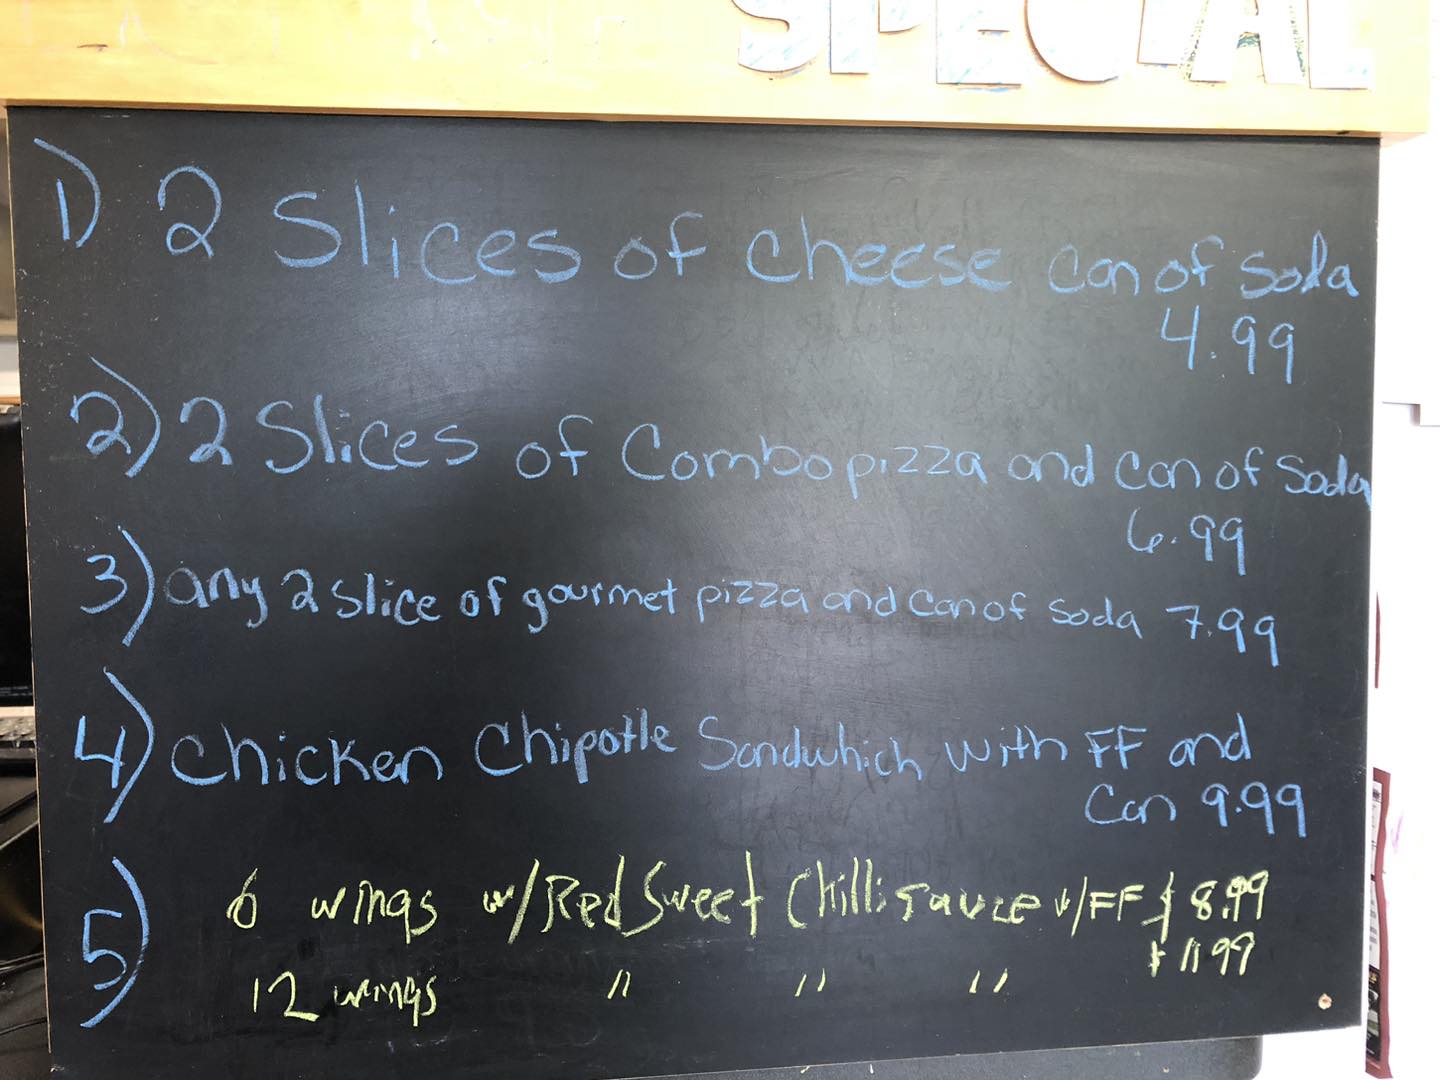 SPECIAL
1) 2 Slices of cheese can of soda
4.99
2) 2 Slices of Combo pizza and can of soda
6.99
3) any 2 slice of gourmet pizza and can of soda 7.99
4) Chicken Chipotle Sandwhich with FF and
Can 9.99
5) 6 wings w/ Red Sweet Chilli sauce w/ FF $ 8.99
$ 11.99
12 wings " " "